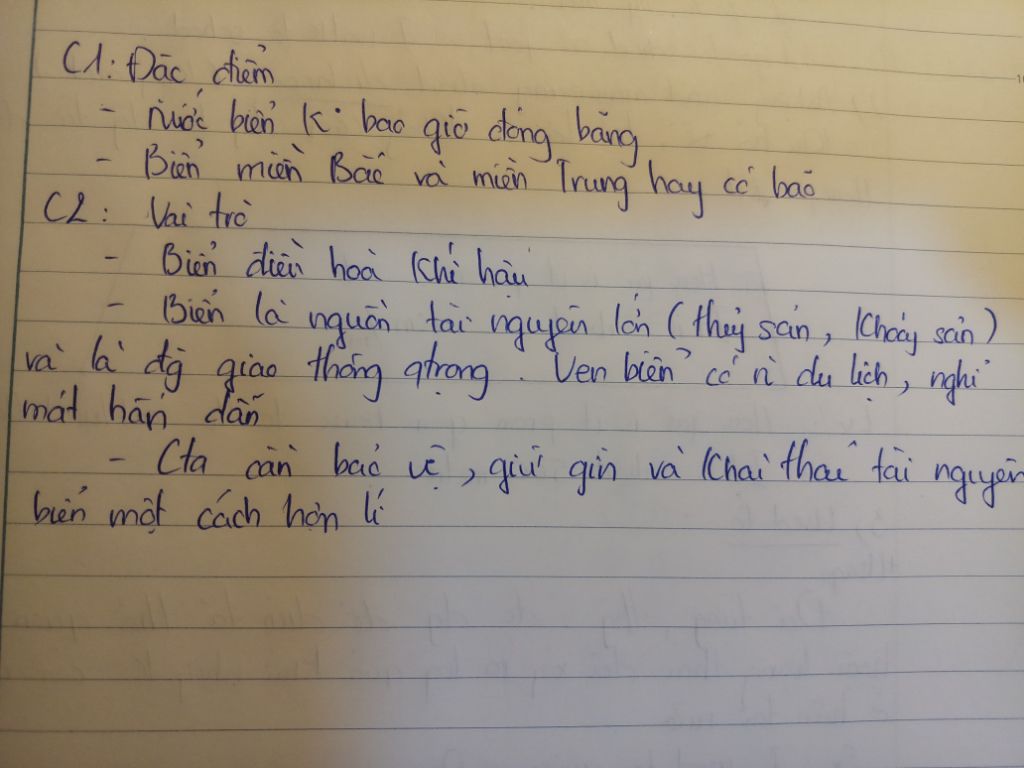 C1: Đặc điểm
- Nước biển k° bao giờ đóng băng
- Biển miền Bắc và miền Trung hay có bão
C2: Vai trò
- Biển điều hoà khí hậu
- Biển là nguồn tài nguyên lớn (thuỷ sản, khoáy sản)
và là đg̀ giao thông qtrọng. Ven biển có ǹ du lịch, nghỉ
mát hấp dẫn
- Cta cần bảo vệ, giữ gìn và khai thác tài nguyên
biển một cách hợp lí